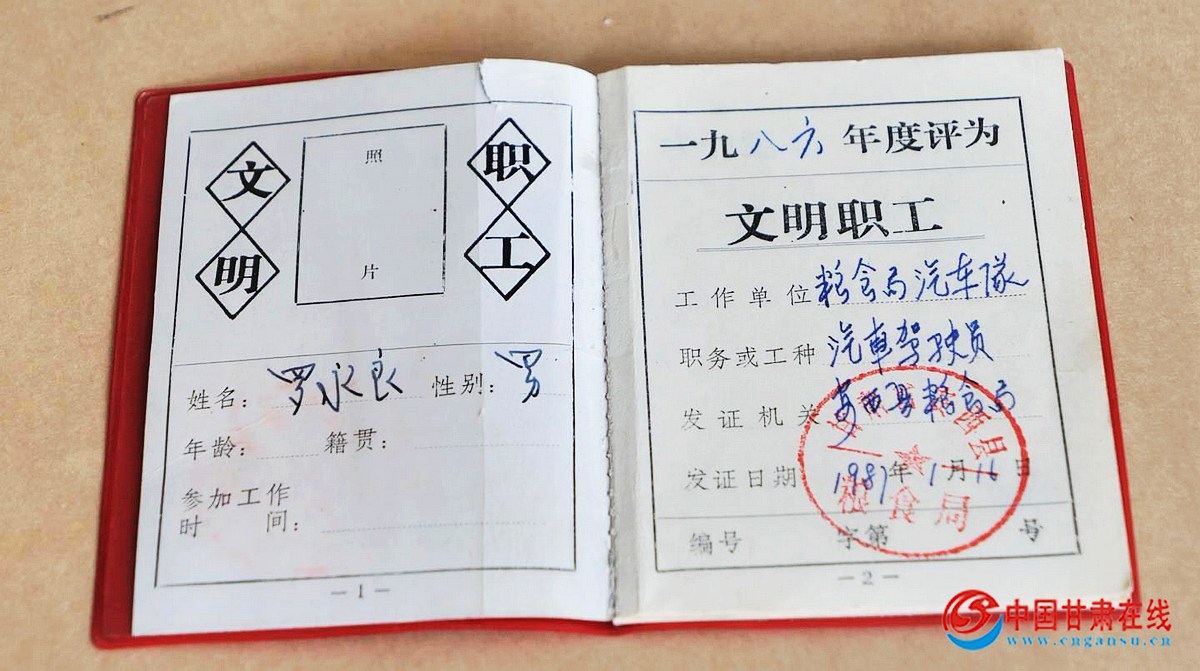 文明
职工
照
片
姓名：罗永良 性别：男
年龄： 籍贯：
参加工作
时间：
—1—
一九八六年度评为
文明职工
工作单位粮食局汽车隊
职务或工种汽車驾驶员
发证机关安西县粮食局
发证日期1987年1月16日
编号 字第 号
—2—
西县
粮食局
中国甘肃在线
www.cngansu.cn